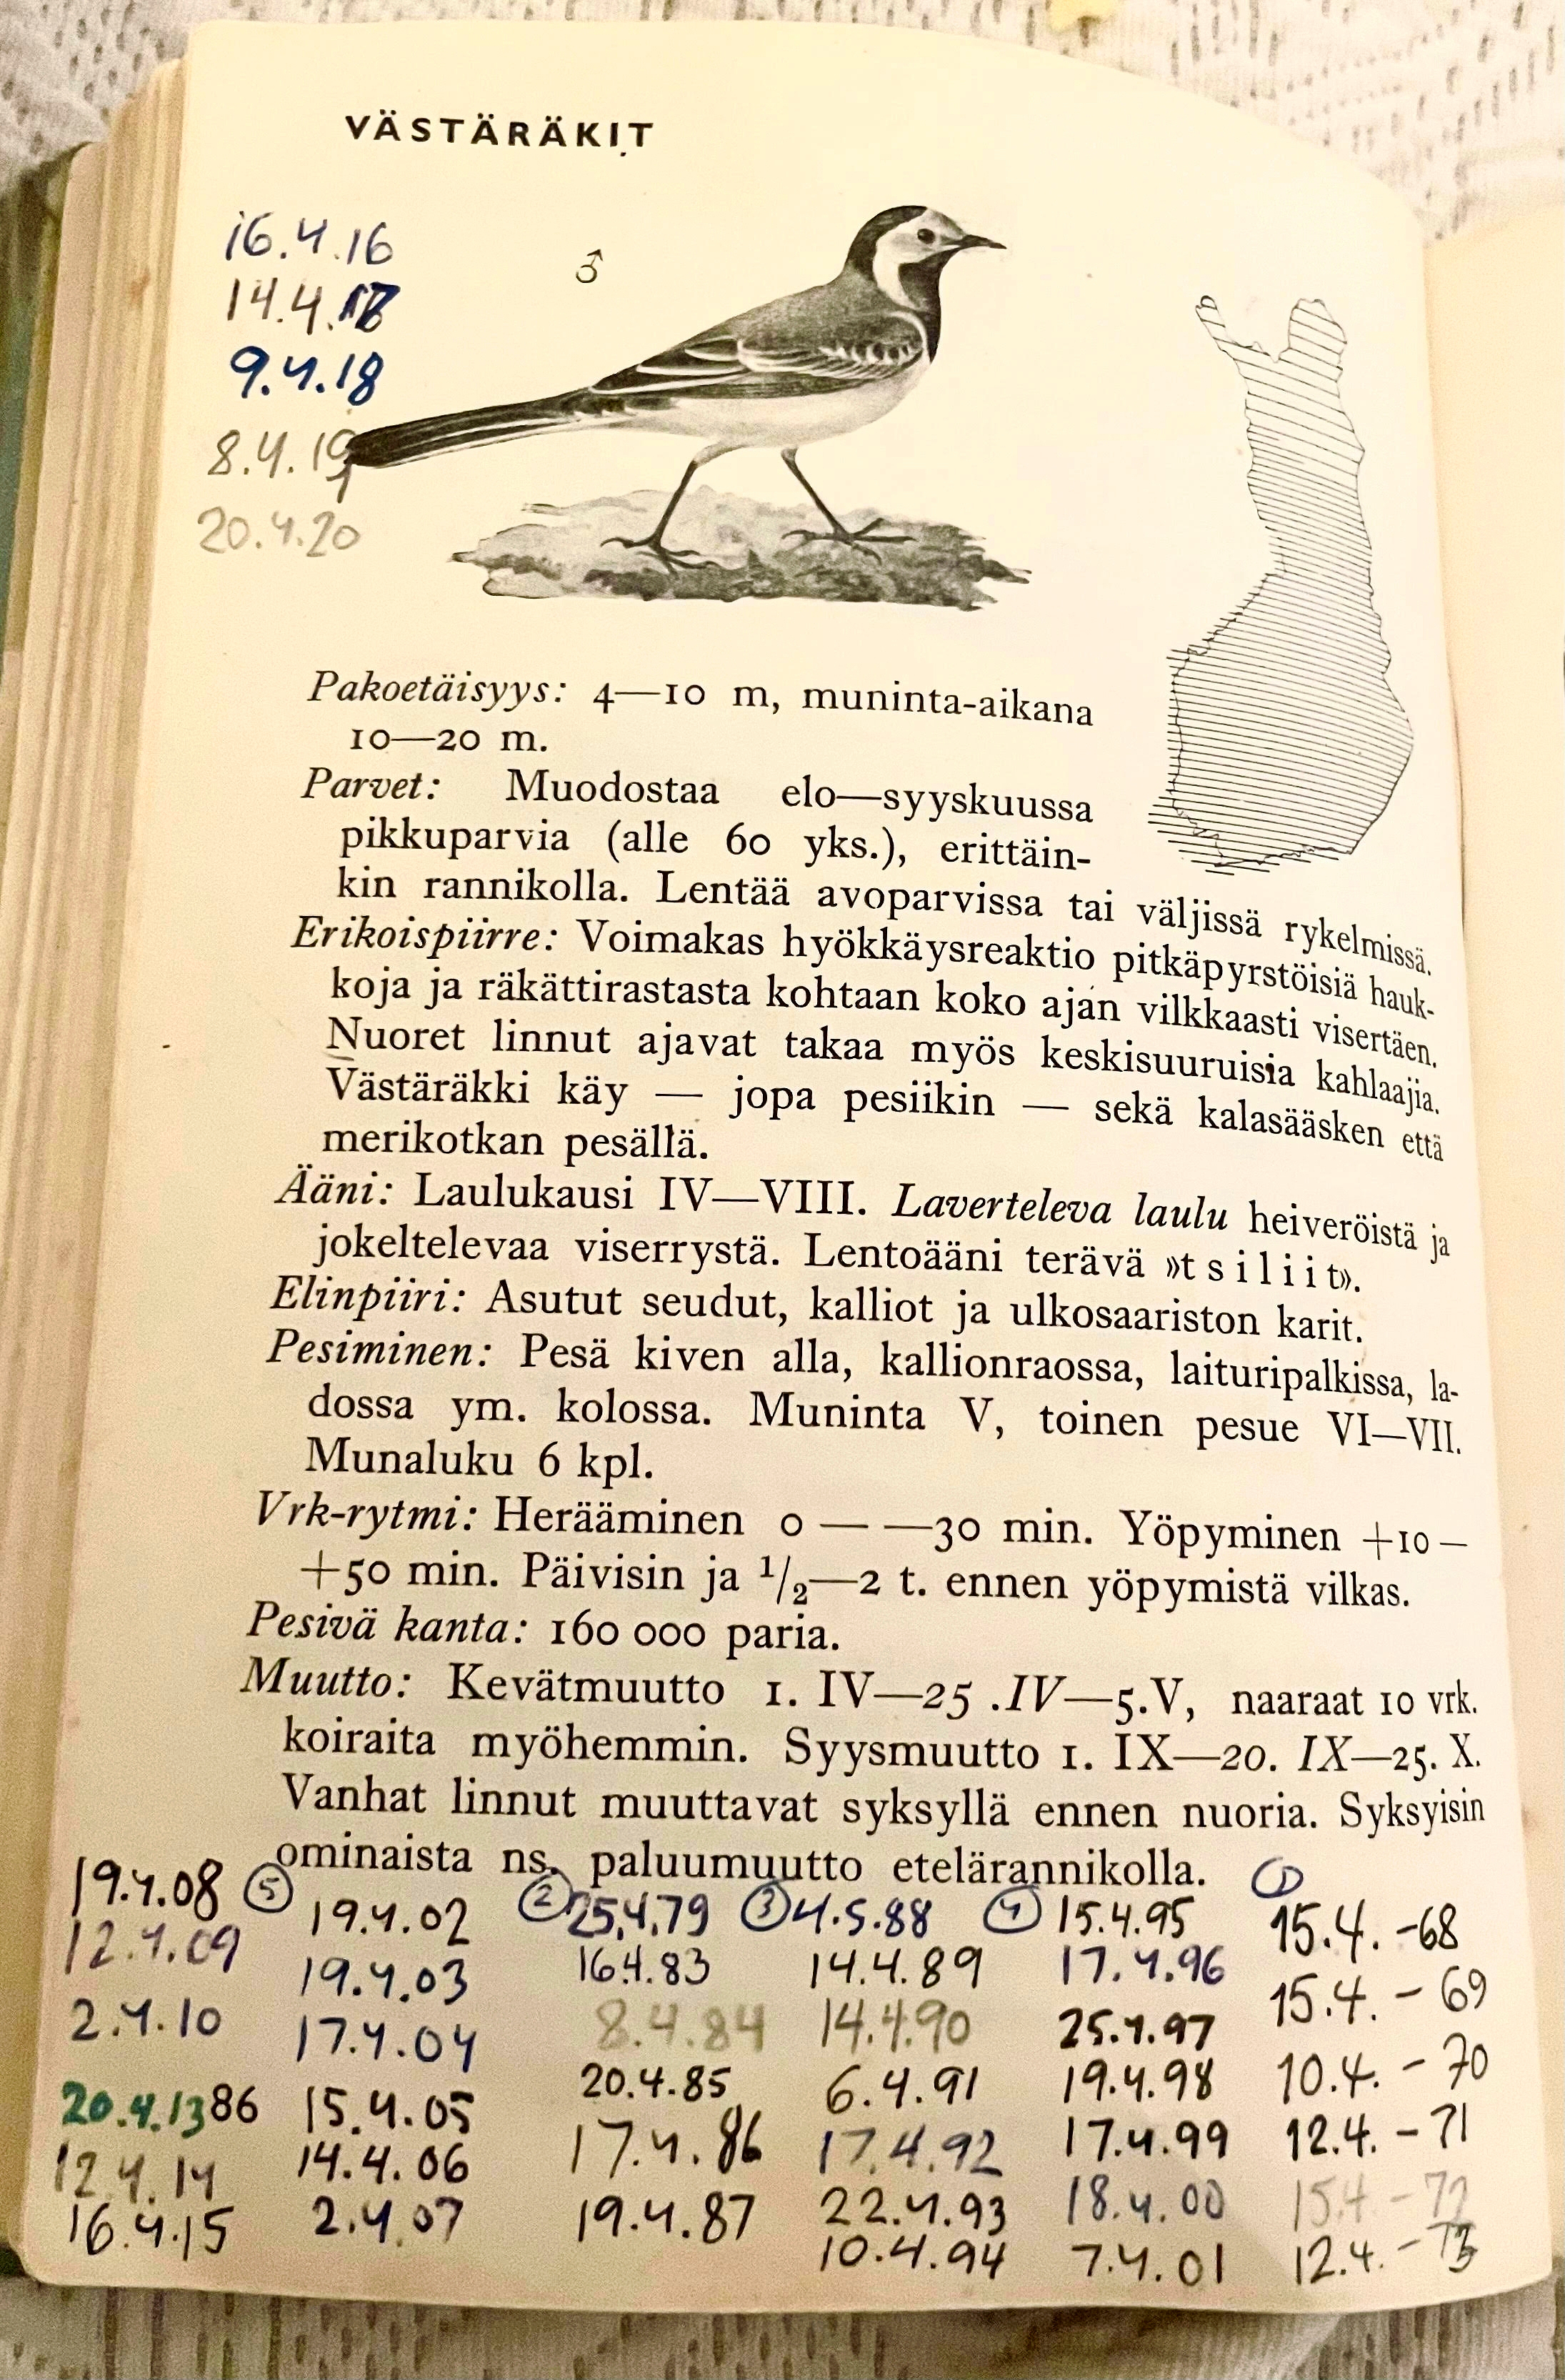 VÄSTÄRÄKIT
16.4.16
14.4.18
9.4.18
8.4.19
20.4.20
♂
Pakoetäisyys: 4—10 m, muninta-aikana
10—20 m.
Parvet: Muodostaa elo—syyskuussa
pikkuparvia (alle 60 yks.), erittäin-
kin rannikolla. Lentää avoparvissa tai väljissä rykelmissä.
Erikoispiirre: Voimakas hyökkäysreaktio pitkäpyrstöisiä hauk-
koja ja räkättirastasta kohtaan koko ajan vilkkaasti visertäen.
Nuoret linnut ajavat takaa myös keskisuuruisia kahlaajia.
Västäräkki käy — jopa pesiikin — sekä kalasääsken että
merikotkan pesällä.
Ääni: Laulukausi IV—VIII. Laverteleva laulu heiveröistä ja
jokeltelevaa viserrystä. Lentoääni terävä »tsiliit».
Elinpiiri: Asutut seudut, kalliot ja ulkosaariston karit.
Pesiminen: Pesä kiven alla, kallionraossa, laituripalkissa, la-
dossa ym. kolossa. Muninta V, toinen pesue VI—VII.
Munaluku 6 kpl.
Vrk-rytmi: Herääminen 0 — —30 min. Yöpyminen +10—
+50 min. Päivisin ja 1/2—2 t. ennen yöpymistä vilkas.
Pesivä kanta: 160 000 paria.
Muutto: Kevätmuutto 1. IV—25 .IV—5.V, naaraat 10 vrk.
koiraita myöhemmin. Syysmuutto 1. IX—20. IX—25. X.
Vanhat linnut muuttavat syksyllä ennen nuoria. Syksyisin
ominaista ns. paluumuutto etelärannikolla.
①
15.4.-68
15.4.-69
10.4.-70
12.4.-71
15.4-72
12.4.-73
②
25.4.79
16.4.83
8.4.84
20.4.85
17.4.86
19.4.87
③
4.5.88
14.4.89
14.4.90
6.4.91
17.4.92
22.4.93
10.4.94
④
15.4.95
17.4.96
25.4.97
19.4.98
17.4.99
18.4.00
7.4.01
⑤
19.4.02
19.4.03
17.4.04
15.4.05
14.4.06
2.4.07
19.4.08
12.4.09
2.4.10
20.4.13
86
12.4.14
16.4.15